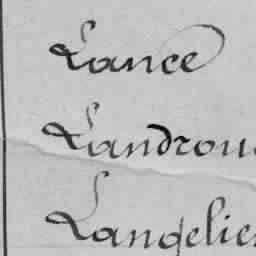 Lance
Landrou
Langelie